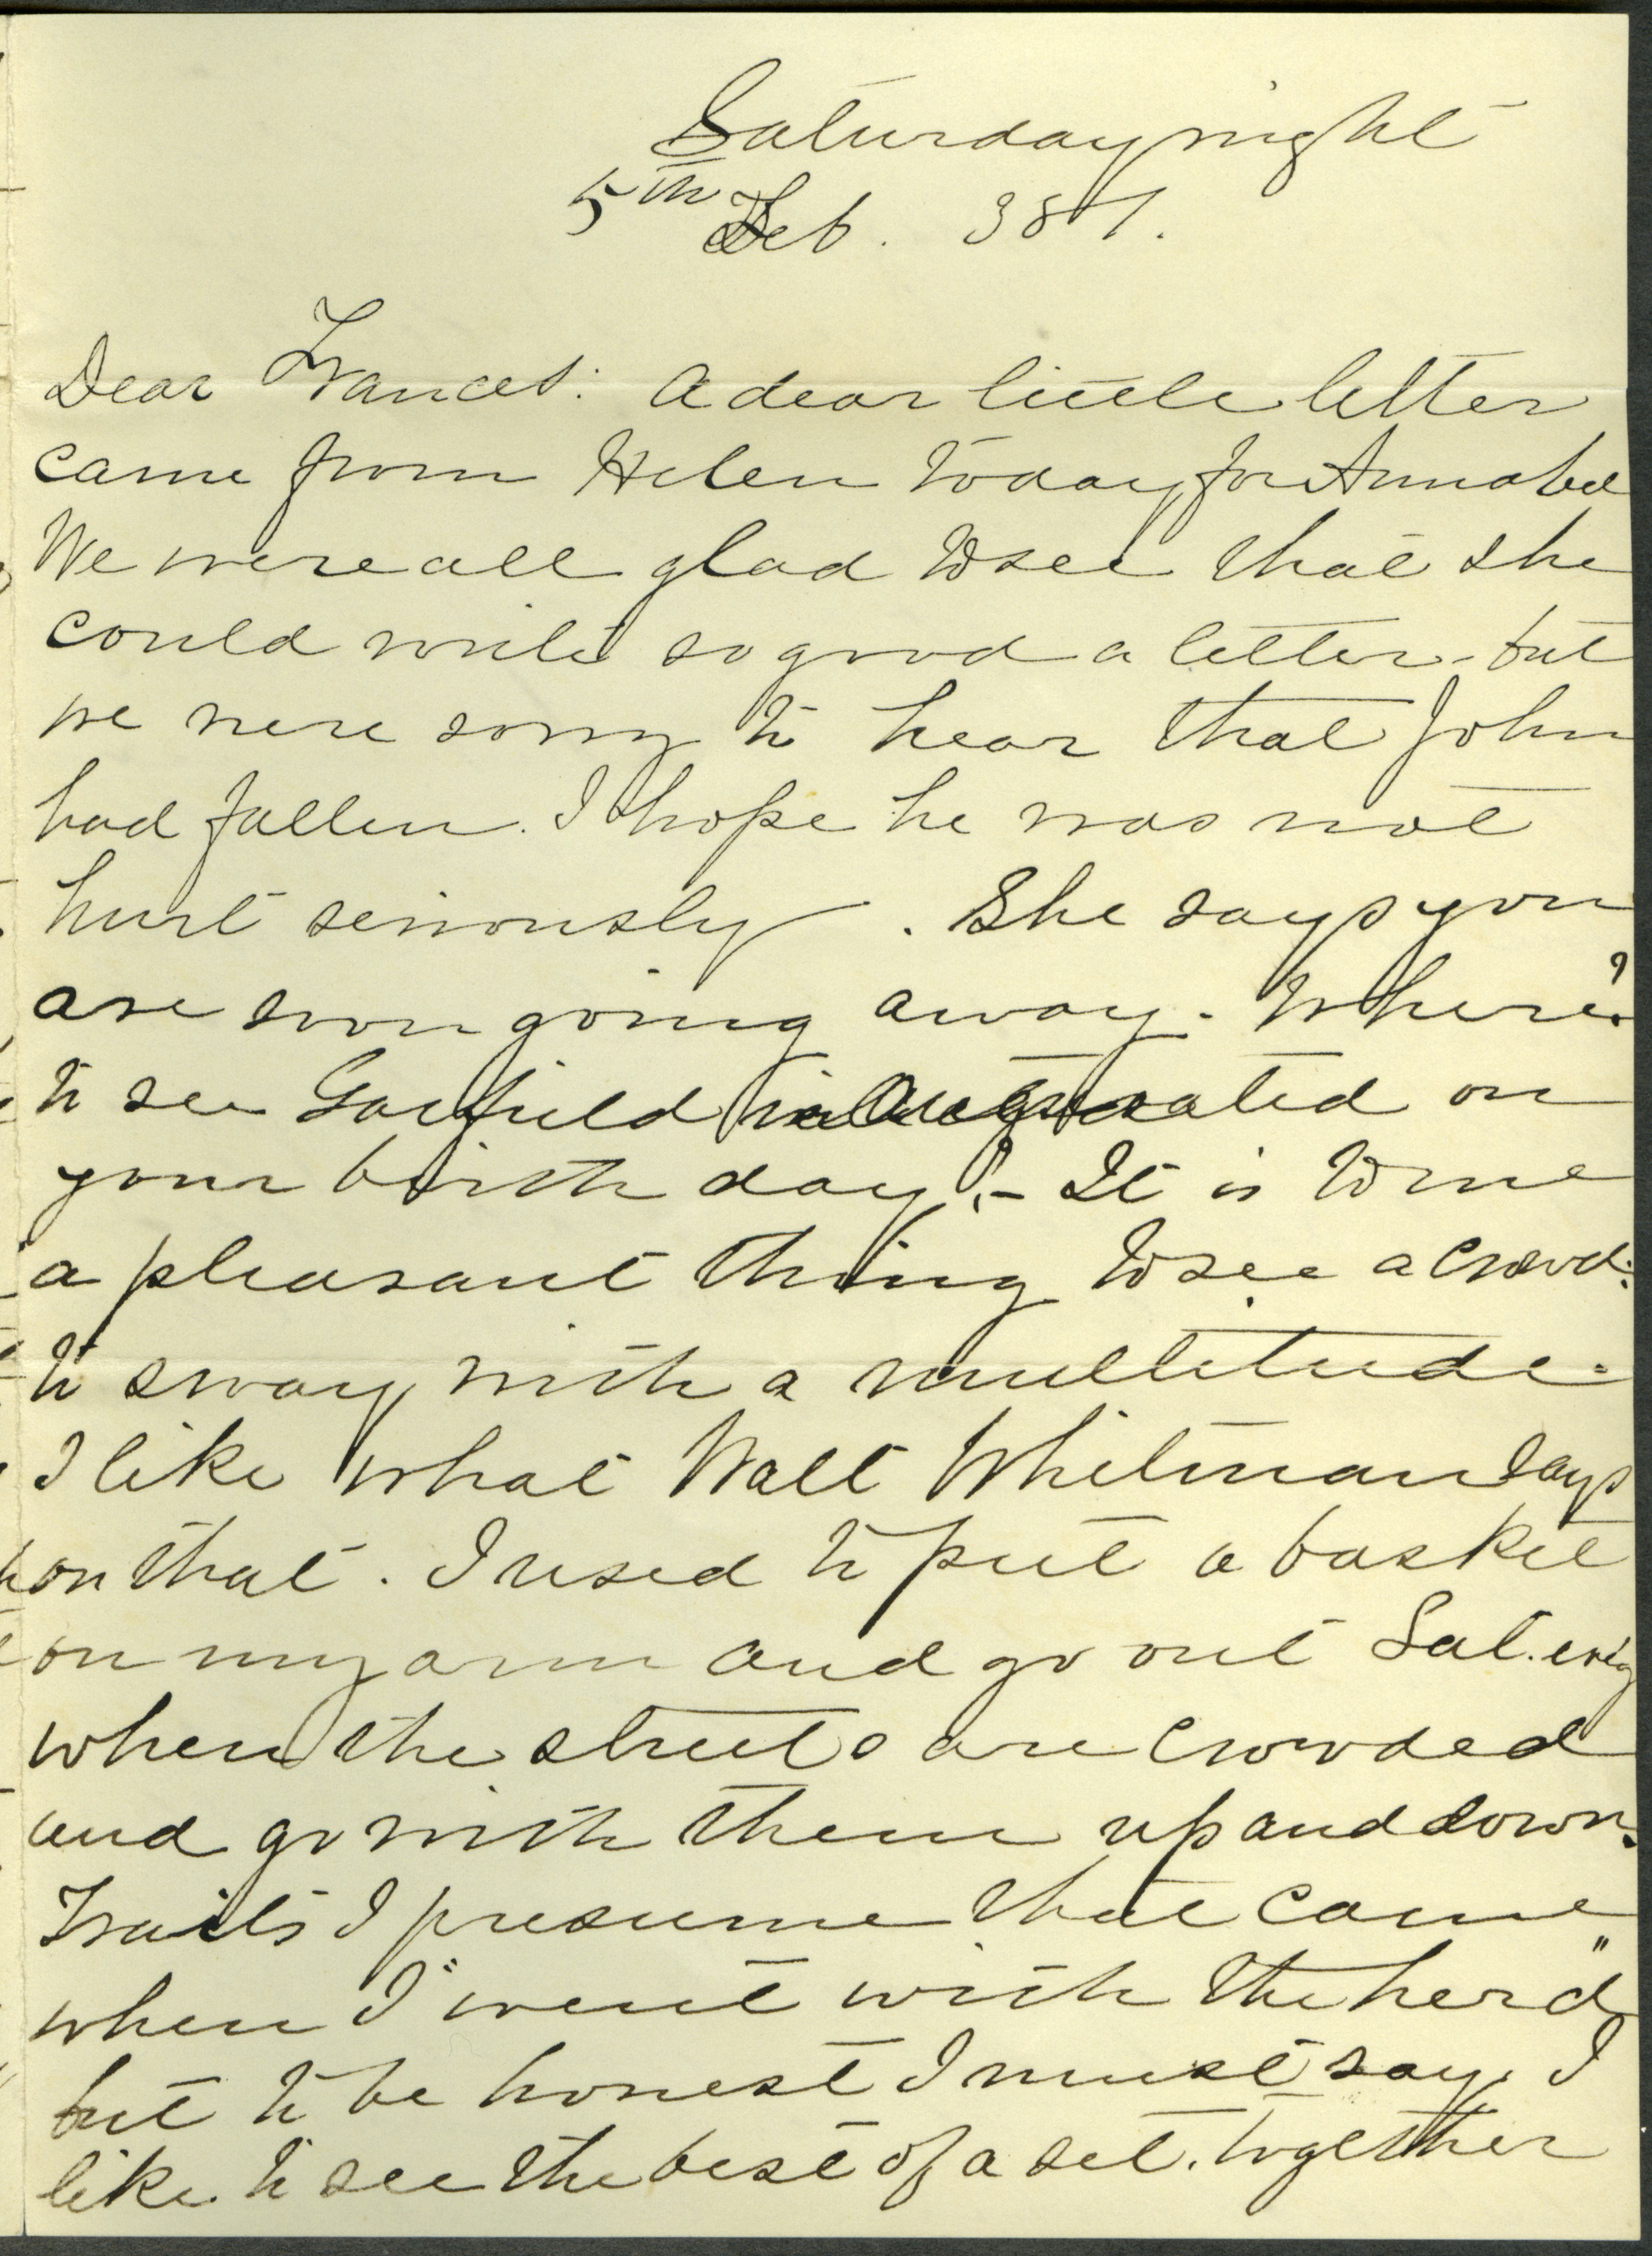 Saturday night
5th Feb. 381.
Dear Frances: A dear little letter
came from Helen today for Annabel
We were all glad to see that she
could write so good a letter - but
we were sorry to hear that John
had fallen. I hope he was not
hurt seriously. She says you
are soon going away. Where?
to see Garfield inaugurated on
your birth day! - It is to me
a pleasant thing to see a crowd:
to sway with a multitude.
I like what Walt Whitman says
on that. I used to put a basket
on my arm and go out Sat. ev'g
when the streets are crowded
and go with them up and down.
Traits I presume that came
when I "went with the herd"
but to be honest I must say, I
like to see the best of a set. together